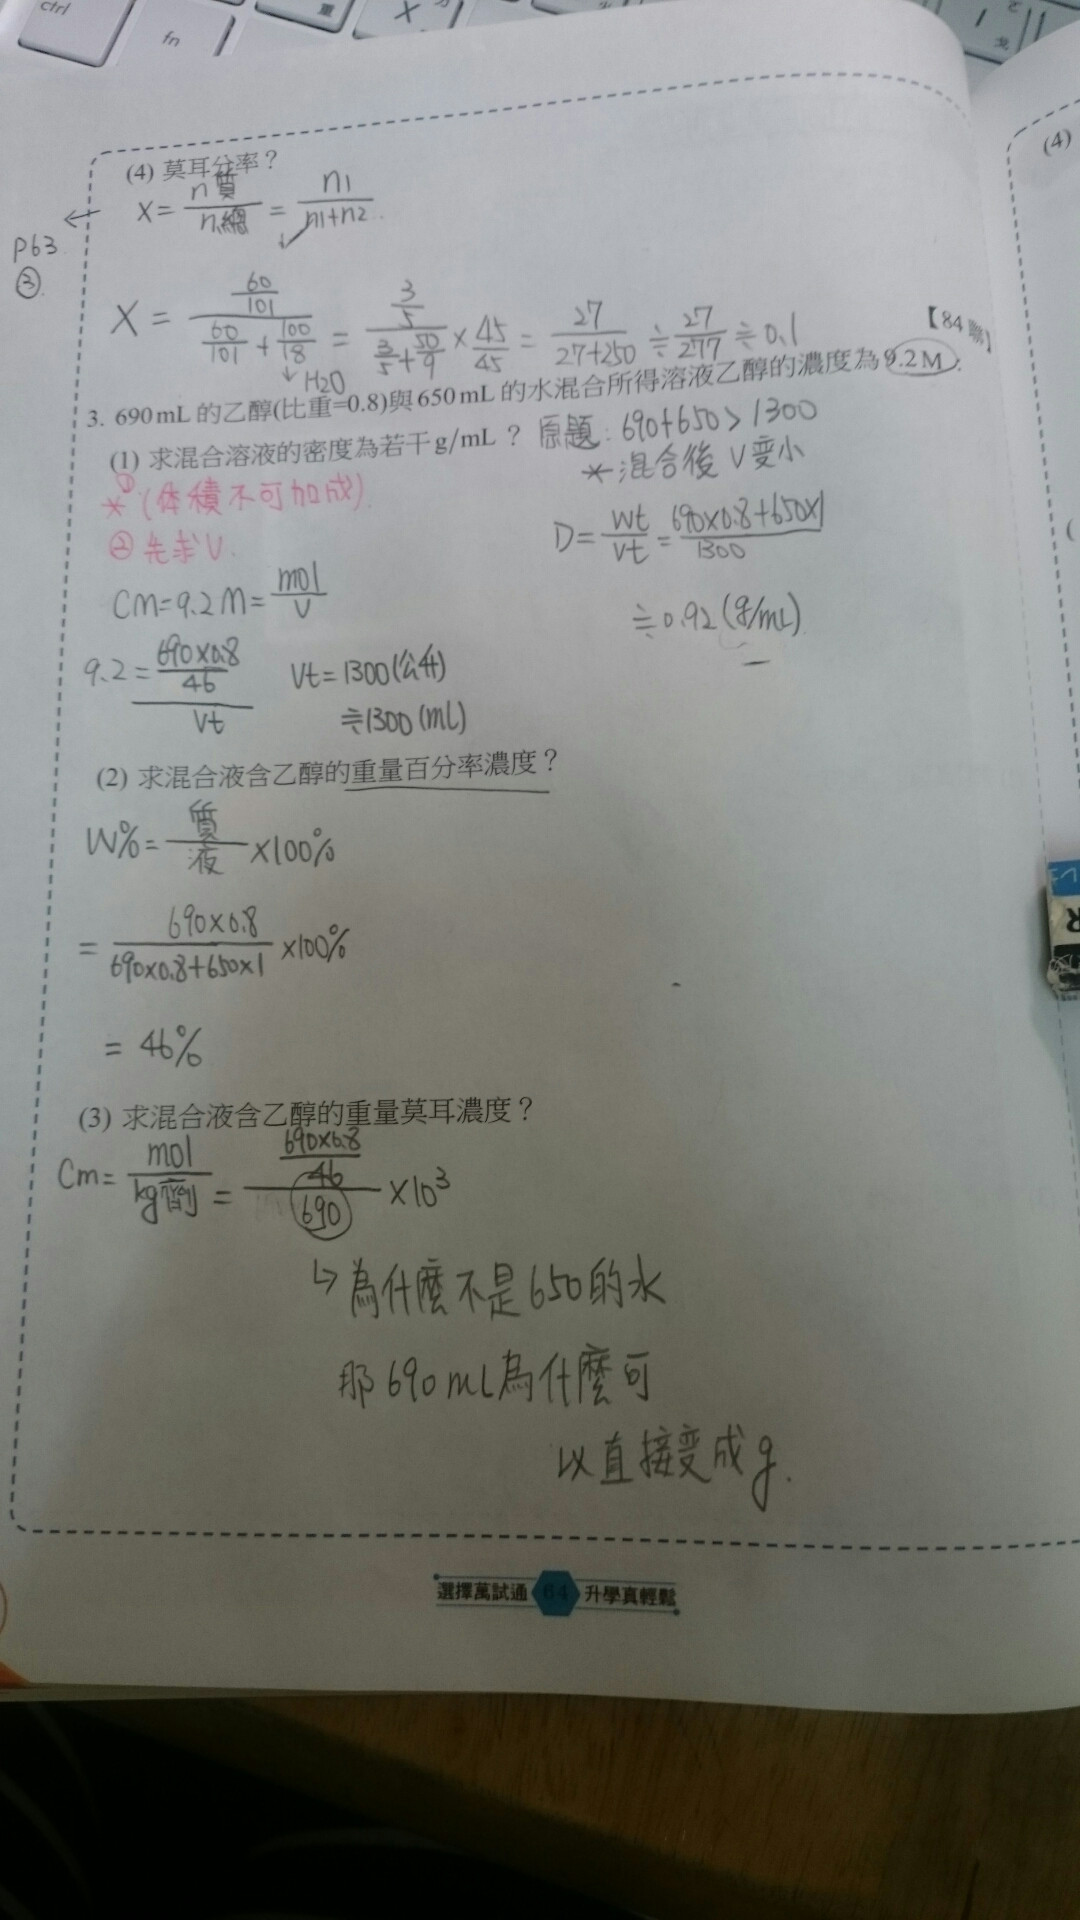 ctrl
fn
(4) 莫耳分率？
X= n質/n總 = n1/n1+n2
P63
③
X = 60/101 / 60/101 + 100/18 = 3/5 / 3/5 + 50/9 × 45/45 = 27/27+250 ≑ 27/277 ≑ 0.1
↓ H2O
【84 聯】
3. 690 mL 的乙醇(比重=0.8)與 650 mL 的水混合所得溶液乙醇的濃度為 9.2 M：
(1) 求混合溶液的密度為若干 g/mL？
原題: 690+650 > 1300
* 混合後 V 变小
* ① (体積不可加成)
② 先求 V.
D= Wt/Vt = 690×0.8+650×1/1300
≑ 0.92 (g/mL)
CM=9.2M= mol/V
9.2= 690×0.8/46 / Vt
Vt=1300(公升)
≑1300(mL)
(2) 求混合液含乙醇的重量百分率濃度？
W%= 質/液 ×100%
= 690×0.8/690×0.8+650×1 ×100%
= 46%
(3) 求混合液含乙醇的重量莫耳濃度？
Cm= mol/kg劑 = 690×0.8/46 / 690 ×10³
↳ 為什麼不是650的水
那 690 mL 為什麼可
以直接变成 g.
選擇萬試通 64 升學真輕鬆
(4)
(